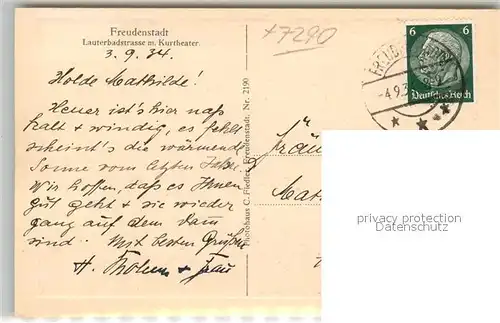 Freudenstadt
Lauterbadstrasse m. Kurtheater.
3.9.34.
Holde Mathilde!
Heuer ist's hier naß
kalt & windig, es fehlt
scheint's die wärmende
Sonne vom letzten Jahre.
Wir hoffen, daß es Ihnen
gut geht & sie wieder
gang auf dem Dam
sind. Mit besten Grüßen
H. & Frau
Photohaus C. Fiedler, Freudenstadt, Nr. 2190
+7290
6 6
Deutsches Reich
-4.9.3
Fräu
Mat
privacy protection
Datenschutz